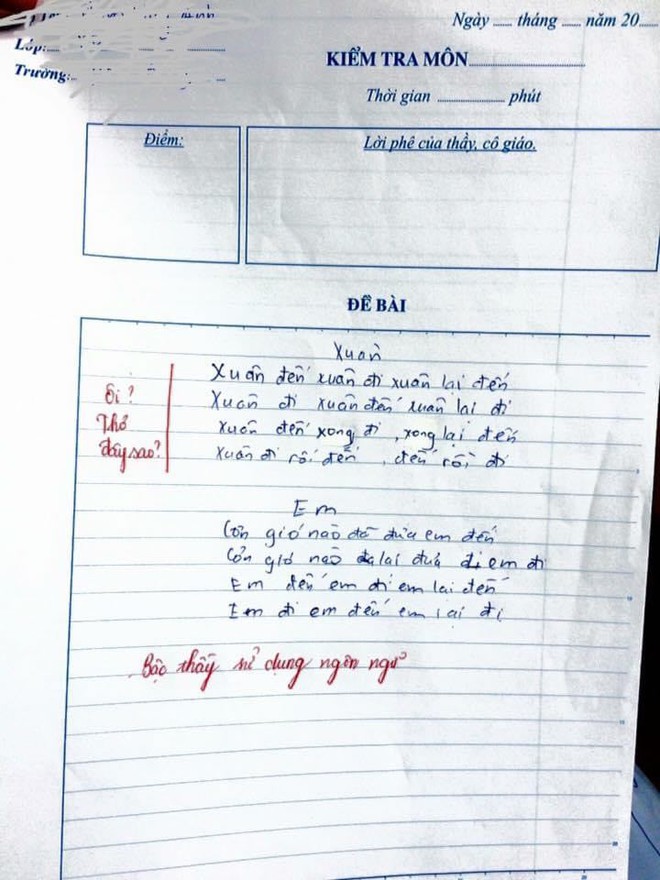 Lớp:
Trường:
Ngày ...... tháng ...... năm 20......
KIỂM TRA MÔN
Thời gian ............... phút
Điểm:
Lời phê của thầy, cô giáo.
ĐỀ BÀI
Xuân
Xuân đến xuân đi xuân lại đến
Xuân đi xuân đến xuân lại đi
Xuân đến xong đi, xong lại đến
Xuân đi rồi đến, đến rồi đi
Ôi?
Thơ
đây sao?
Em
Cơn gió nào đã đưa em đến
Cơn gió nào lại đưa em đi
Em đến em đi em lại đến
Em đi em đến em lại đi
Bảo thầy sử dụng ngôn ngữ